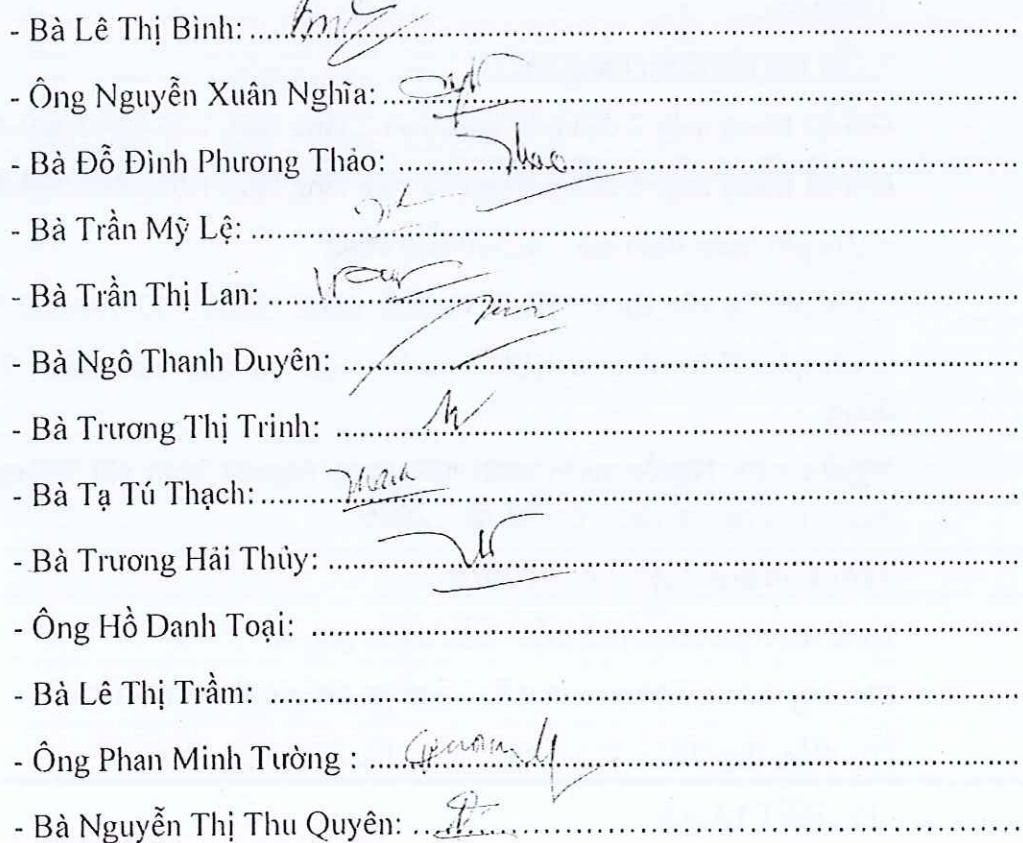 - Bà Lê Thị Bình: ..............................
- Ông Nguyễn Xuân Nghĩa: ..............................
- Bà Đỗ Đình Phương Thảo: .............................. Thao
- Bà Trần Mỹ Lệ: ..............................
- Bà Trần Thị Lan: ..............................
- Bà Ngô Thanh Duyên: ..............................
- Bà Trương Thị Trinh: ..............................
- Bà Tạ Tú Thạch: ..............................
- Bà Trương Hải Thủy: ..............................
- Ông Hồ Danh Toại: ..............................
- Bà Lê Thị Trầm: ..............................
- Ông Phan Minh Tường : ..............................
- Bà Nguyễn Thị Thu Quyên: ..............................